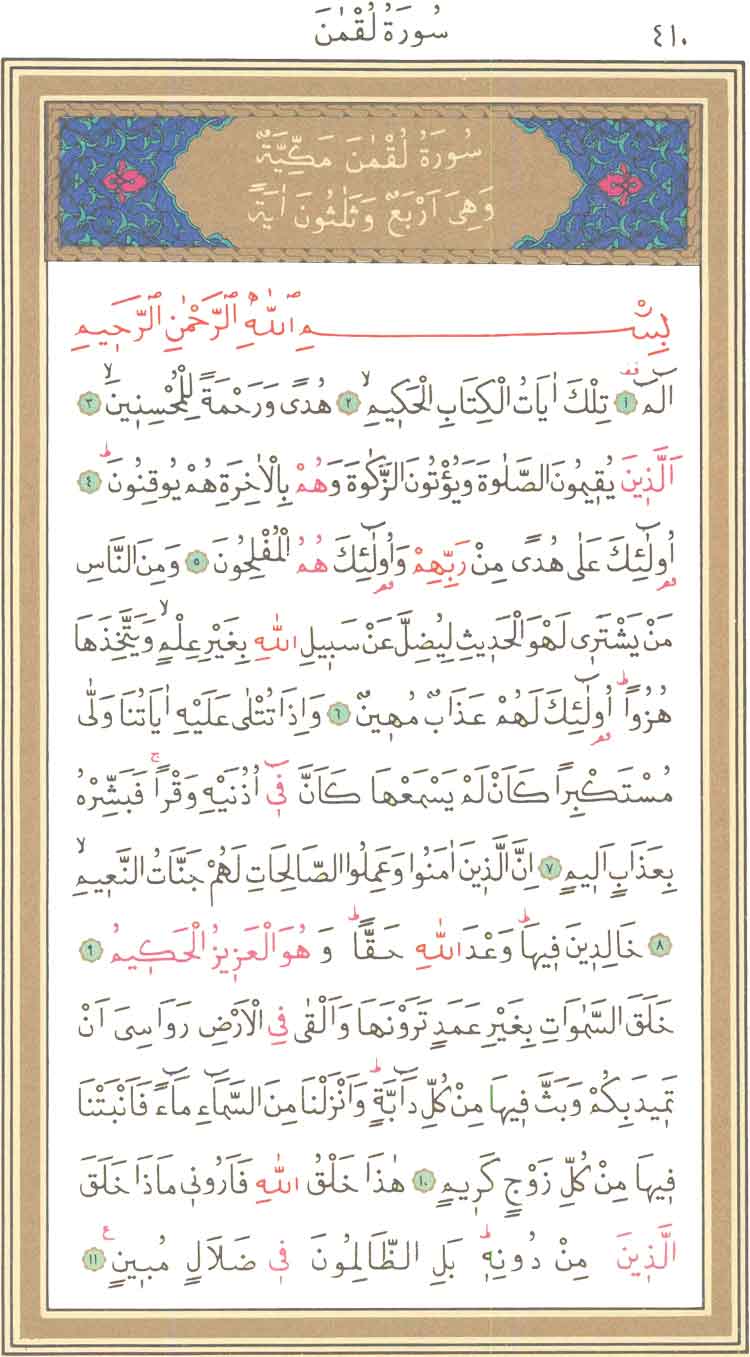 سُورَةُ لُقْمٰنَ
٤١٠
سُورَةُ لُقْمٰنَ مَكِّيَّةٌ
وَهِيَ اَرْبَعٌ وَثَلٰثُونَ اٰيَةً
بِسْمِ اللّٰهِ الرَّحْمٰنِ الرَّحٖيمِ
الٓمٓ ﴿١﴾ تِلْكَ اٰيَاتُ الْكِتَابِ الْحَكٖيمِۙ ﴿٢﴾ هُدًى وَرَحْمَةً لِلْمُحْسِنٖينَۙ ﴿٣﴾
اَلَّذٖينَ يُقٖيمُونَ الصَّلٰوةَ وَيُؤْتُونَ الزَّكٰوةَ وَهُمْ بِالْاٰخِرَةِ هُمْ يُوقِنُونَۜ ﴿٤﴾
اُو۬لٰٓئِكَ عَلٰى هُدًى مِنْ رَبِّهِمْ وَاُو۬لٰٓئِكَ هُمُ الْمُفْلِحُونَ ﴿٥﴾ وَمِنَ النَّاسِ
مَنْ يَشْتَرٖى لَهْوَ الْحَدٖيثِ لِيُضِلَّ عَنْ سَبٖيلِ اللّٰهِ بِغَيْرِ عِلْمٍۙ وَيَتَّخِذَهَا
هُزُوًاۜ اُو۬لٰٓئِكَ لَهُمْ عَذَابٌ مُهٖينٌ ﴿٦﴾ وَاِذَا تُتْلٰى عَلَيْهِ اٰيَاتُنَا وَلّٰى
مُسْتَكْبِرًا كَاَنْ لَمْ يَسْمَعْهَا كَاَنَّ فٖٓى اُذُنَيْهِ وَقْرًاۚ فَبَشِّرْهُ
بِعَذَابٍ اَلٖيمٍ ﴿٧﴾ اِنَّ الَّذٖينَ اٰمَنُوا وَعَمِلُوا الصَّالِحَاتِ لَهُمْ جَنَّاتُ النَّعٖيمِۙ
﴿٨﴾ خَالِدٖينَ فٖيهَاۜ وَعْدَ اللّٰهِ حَقًّاۜ وَهُوَ الْعَزٖيزُ الْحَكٖيمُ ﴿٩﴾
خَلَقَ السَّمٰوَاتِ بِغَيْرِ عَمَدٍ تَرَوْنَهَا وَاَلْقٰى فِى الْاَرْضِ رَوَاسِىَ اَنْ
تَمٖيدَ بِكُمْ وَبَثَّ فٖيهَا مِنْ كُلِّ دَٓابَّةٍۜ وَاَنْزَلْنَا مِنَ السَّمَٓاءِ مَٓاءً فَاَنْبَتْنَا
فٖيهَا مِنْ كُلِّ زَوْجٍ كَرٖيمٍ ﴿١٠﴾ هٰذَا خَلْقُ اللّٰهِ فَاَرُونٖى مَاذَا خَلَقَ
الَّذٖينَ مِنْ دُونِهٖۜ بَلِ الظَّالِمُونَ فٖى ضَلَالٍ مُبٖينٍ ﴿١١﴾ ع